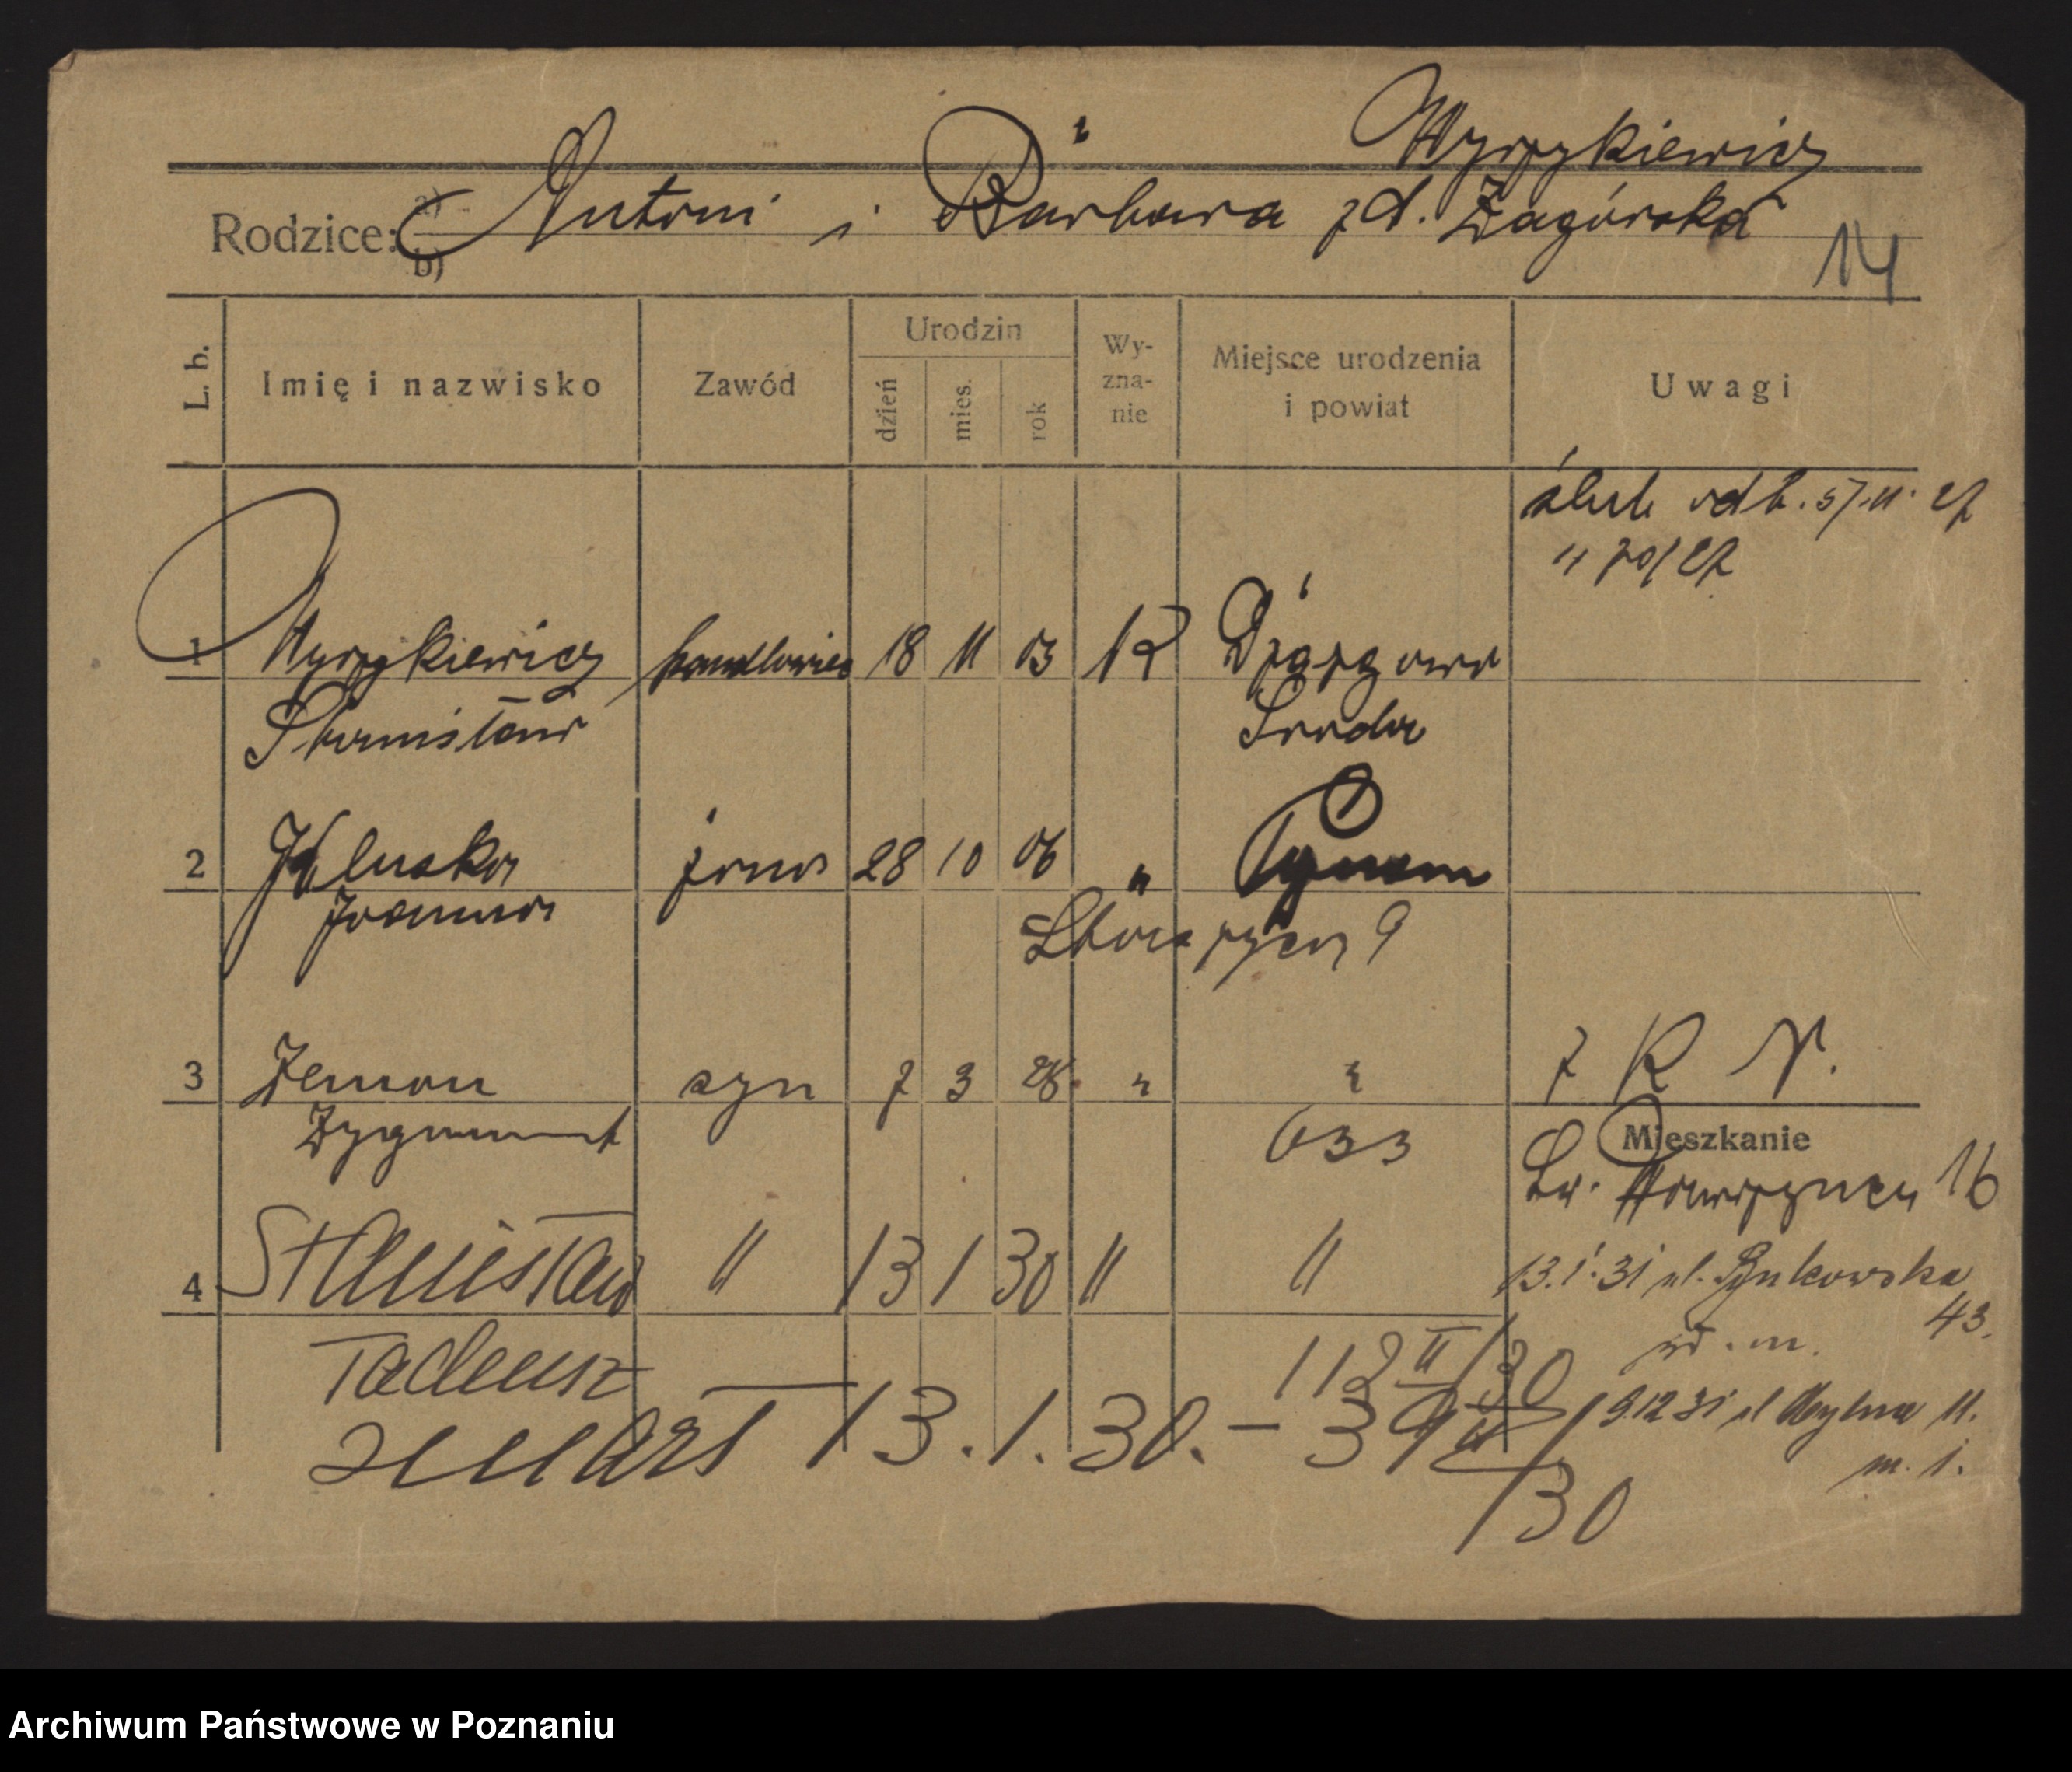 Wyrzykiewicz
Rodzice: a) Antoni i Barbara zd. Zagórska
b)
14
L. b.
Imię i nazwisko
Zawód
Urodzin
dzień
mies.
rok
Wy-
zna-
nie
Miejsce urodzenia
i powiat
Uwagi
ślub odb. 5/.11. 27
70/27
1 Wyrzykiewicz handlowiec 18 11 03 K
Stanisław Środa
2 żona 28 10 06 "
Joanna 9
3 Zenon syn 7 3 28 " "
Zygmunt 633
7 R N.
Mieszkanie
Św. Wawrzyńca 16
4 Stanisław " 13 1 30 " "
Tadeusz 112 II/30
13.1.31 ul. Bukowska
43.
zmarł 13.1.30. - 39 II/30
9.12 31 ul 11.
m. 1.
Archiwum Państwowe w Poznaniu